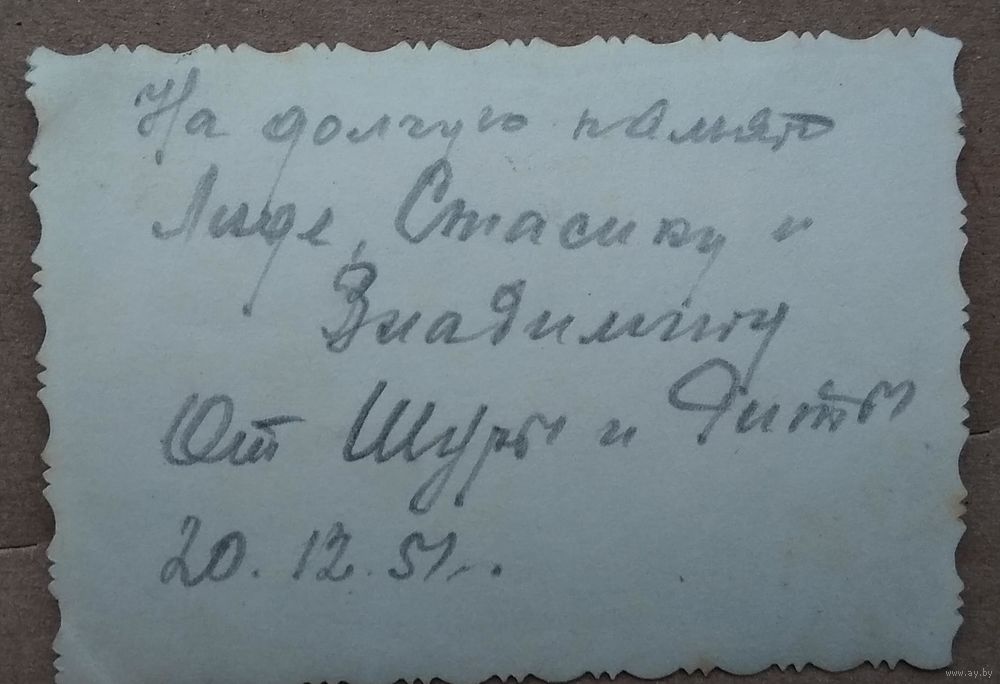 На долгую память
Лиде, Стасику и
Владимиру
От Шуры и Риты
20.12.51г.
www.ay.by